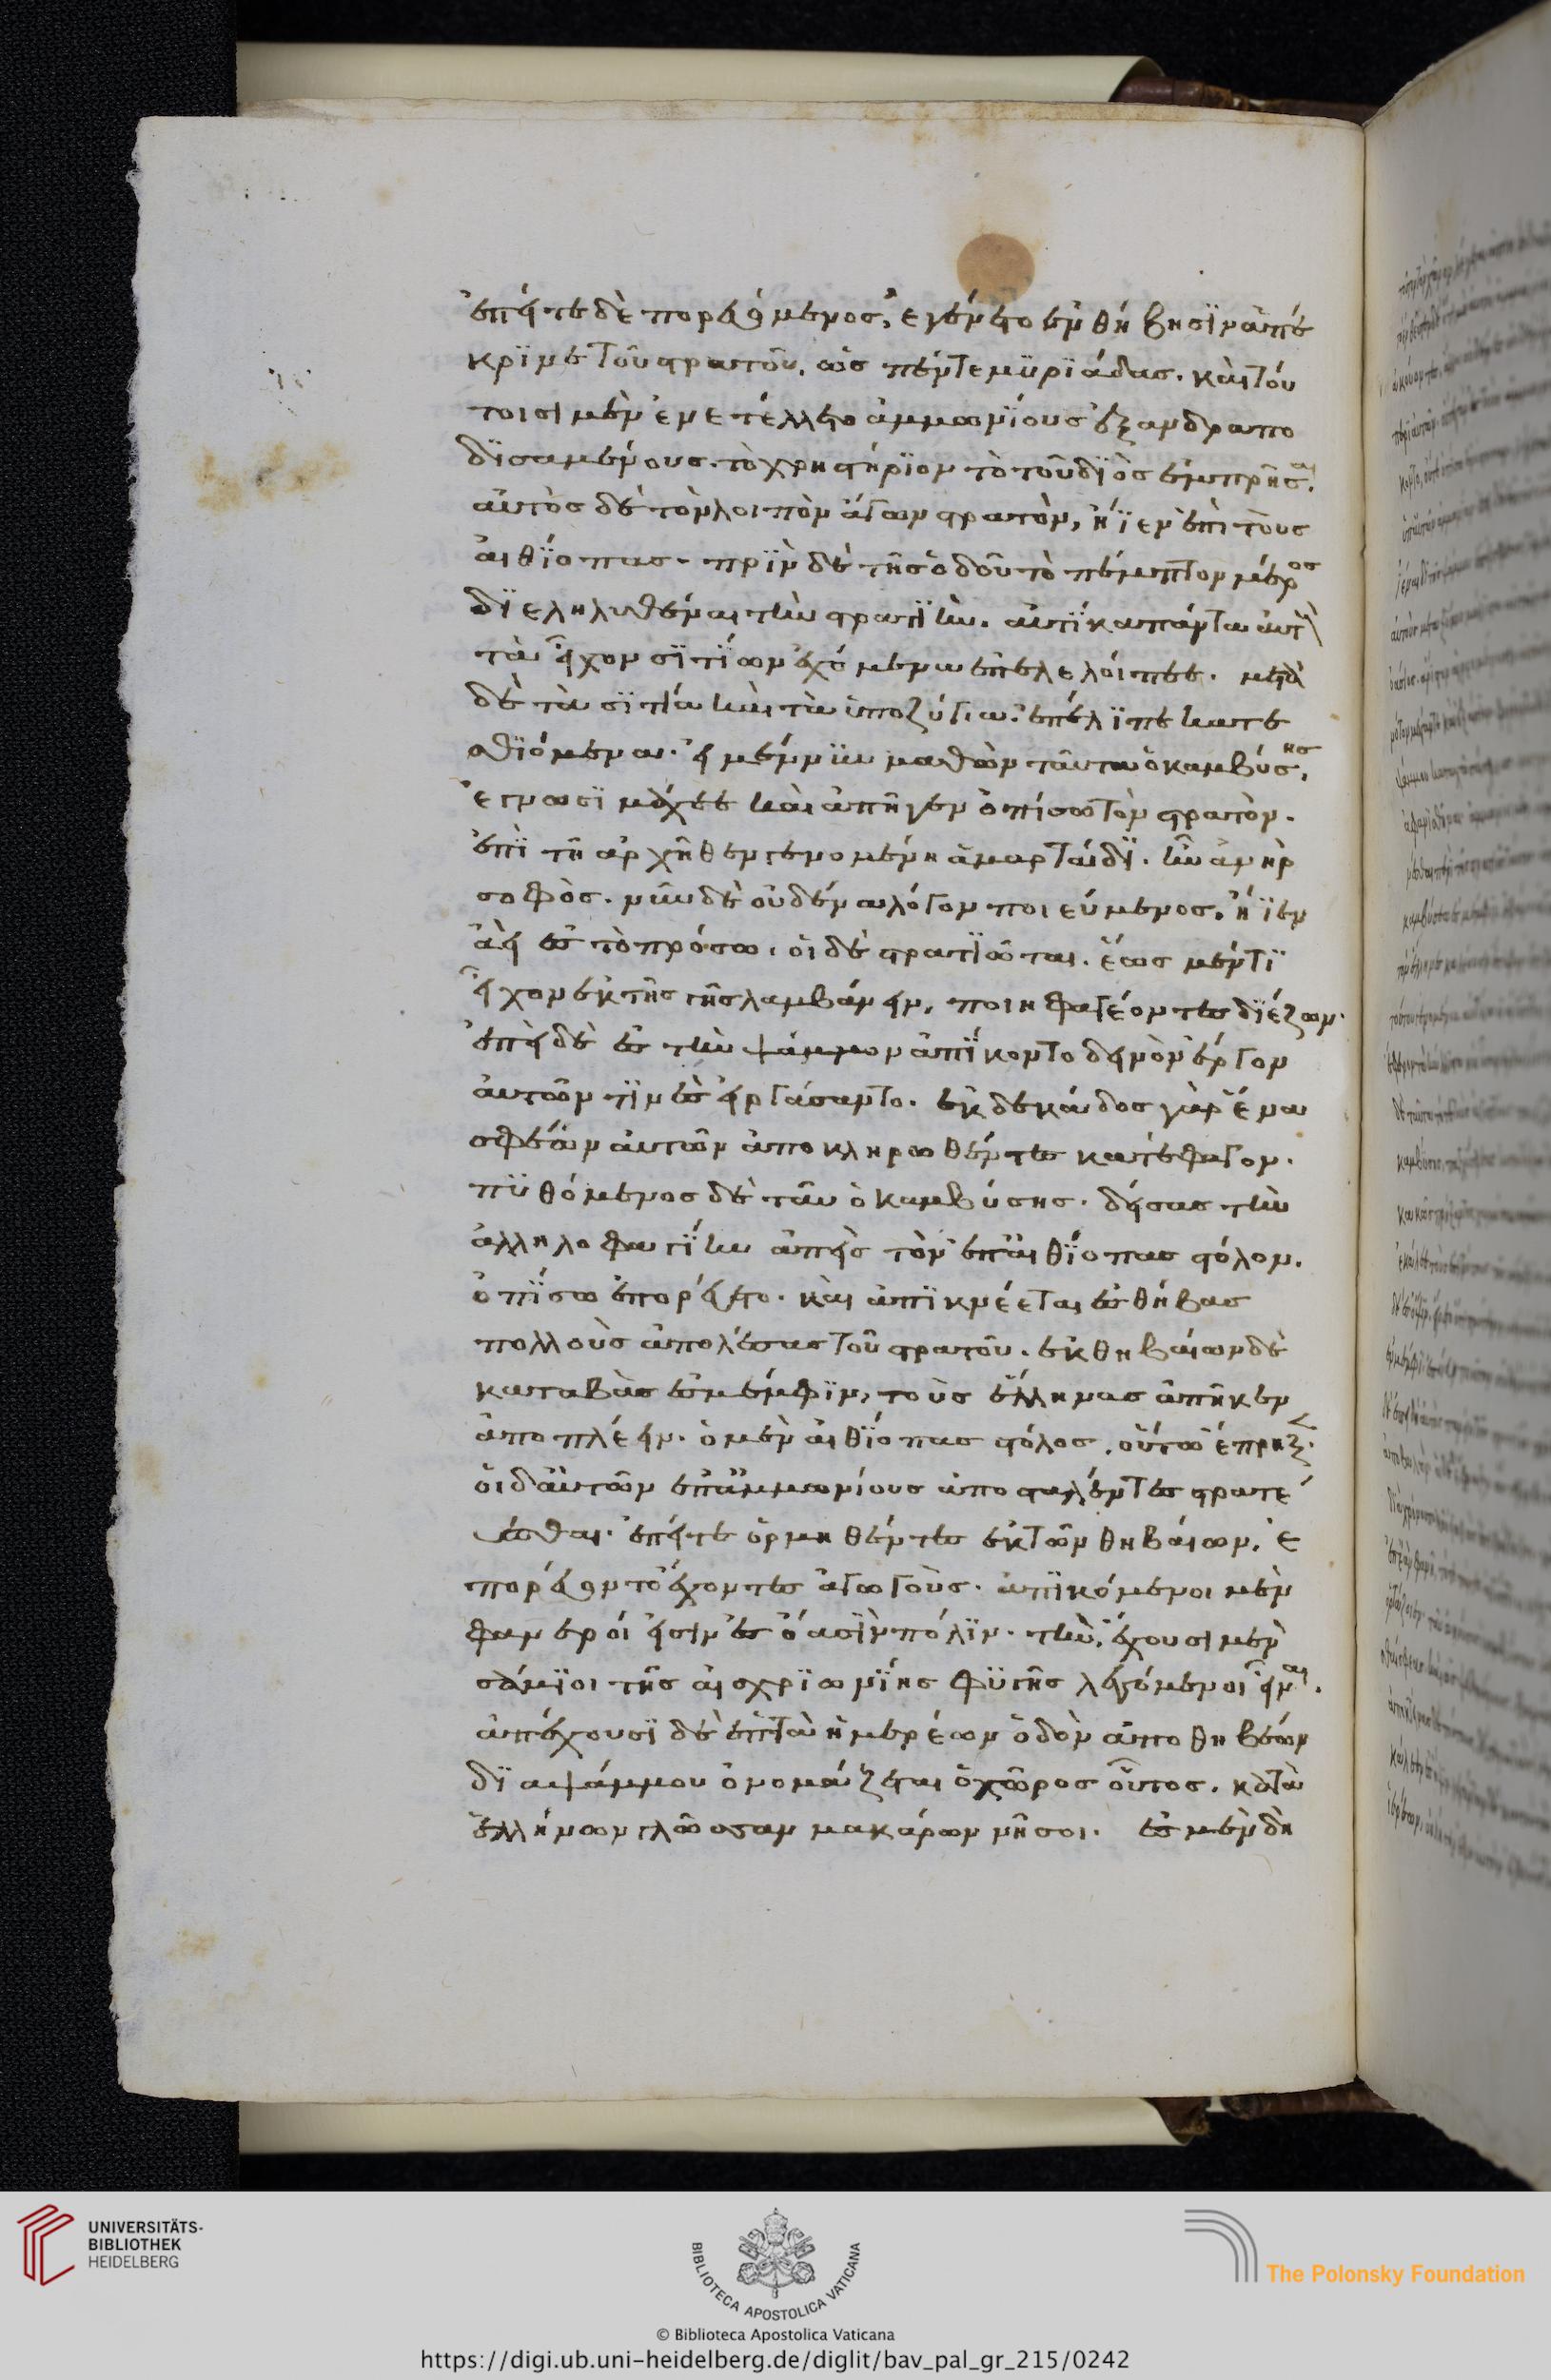 ἐπείτε δὲ πορευόμενος, ἐγένετο ἐν θήβησϊν ἀπέ
κρϊνε τοῦ στρατοῦ. ὡς πέντε μϋρϊάδας. καὶ τού
τοισι μὲν ἐνετέλλετο ἀμμωνϊους ἐξανδραπο
δϊσαμένους. τὸ χρηστήρϊον τὸ τοῦ δϊὸς ἐμπρῆσαι.
αὐτὸς δὲ τὸν λοιπὸν ἄγων στρατὸν, ἤϊεν ἐπὶ τοὺς
αἰθϊοπας. πρϊν δὲ τῆς ὁδοῦ τὸ πέμπτον μέρος
δϊεληλυθέναι τὴν στρατϊὴν. αὐτϊκα πάντα αὐτ
τὰ εἶχον σϊτϊων ἐχόμενα ἐπελελοίπεε. μετὰ
δὲ τὰ σϊτία καὶ τὰ ὑποζύγια. ἐπέλϊπε κατε
σθϊόμενα. εἰ μέν νϊν μαθὼν ταῦτα ὁ καμβύσης,
ἐγνωσϊμάχεε καὶ ἀπῆγεν ὀπίσω τὸν στρατὸν.
ἐπϊ τῆ ἀρχῆθεν γενομένη ἁμαρτάδϊ. ἦν ἀνὴρ
σοφὸς. νῦν δὲ οὐδένα λόγον ποιεύμενος, ἤϊεν
ἀεὶ ἐς τὸ πρόσω. οἱ δὲ στρατϊῶται. ἕως μέν τϊ
εἶχον ἐκ τῆς γῆς λαμβάνειν, ποιηφαγέοντες δϊέζωον.
ἐπεὶ δὲ ἐς τὴν ψάμμον ἀπϊκοντο δεινὸν ἔργον
αὐτῶν τϊνὲς ἐργάσαντο. ἐκ δεκάδος γὰρ ἕνα
σφέων αὐτῶν ἀποκληρωθέντες κατέφαγον.
πϋθόμενος δὲ ταῦ ὁ καμβύσης. δείσας τὴν
ἀλληλοφαγϊην ἀπεὶς τὸν ἐπ' αἰθϊοπας στόλον.
ὀπϊσω ἐπορεύετο. καὶ ἀπϊκνέεται ἐς θήβας
πολλοὺς ἀπολέσας τοῦ στρατοῦ. ἐκ θηβαίων δὲ
καταβὰς ἐς μέμφϊν, τοὺς ἕλληνας ἀπῆκεν
ἀποπλέειν. ὁ μὲν αἰθϊοπας στόλος, οὕτω ἔπρηξ.
οἱ δ' αὐτῶν ἐπ' ἀμμωνίους ἀποσταλέντες στρατεύ
εσθαι. ἐπείτε ὁρμηθέντες ἐκ τῶν θηβαίων, ἐ
πορεύοντο ἔχοντες ἀγωγοὺς. ἀπϊκόμενοι μὲν
φανεροί εἰσιν ἐς ὄασϊν πόλϊν. τὴν, ἔχουσι μὲν
σάμϊοι τῆς αἰσχρϊωνϊης φϋλῆς λεγόμενοι εἶναι.
ἀπέχουσϊ δὲ ἑπτὰ ἡμερέων ὁδὸν ἀπο θηβέων
δϊα ψάμμου ὀνομάζεται ὁ χῶρος οὗτος. κατὰ
ἑλλήνων γλῶσσαν μακάρων νῆσοι. ἐς μὲν δὴ
UNIVERSITÄTS-
BIBLIOTHEK
HEIDELBERG
BIBLIOTECA APOSTOLICA VATICANA
The Polonsky Foundation
© Biblioteca Apostolica Vaticana
https://digi.ub.uni-heidelberg.de/diglit/bav_pal_gr_215/0242